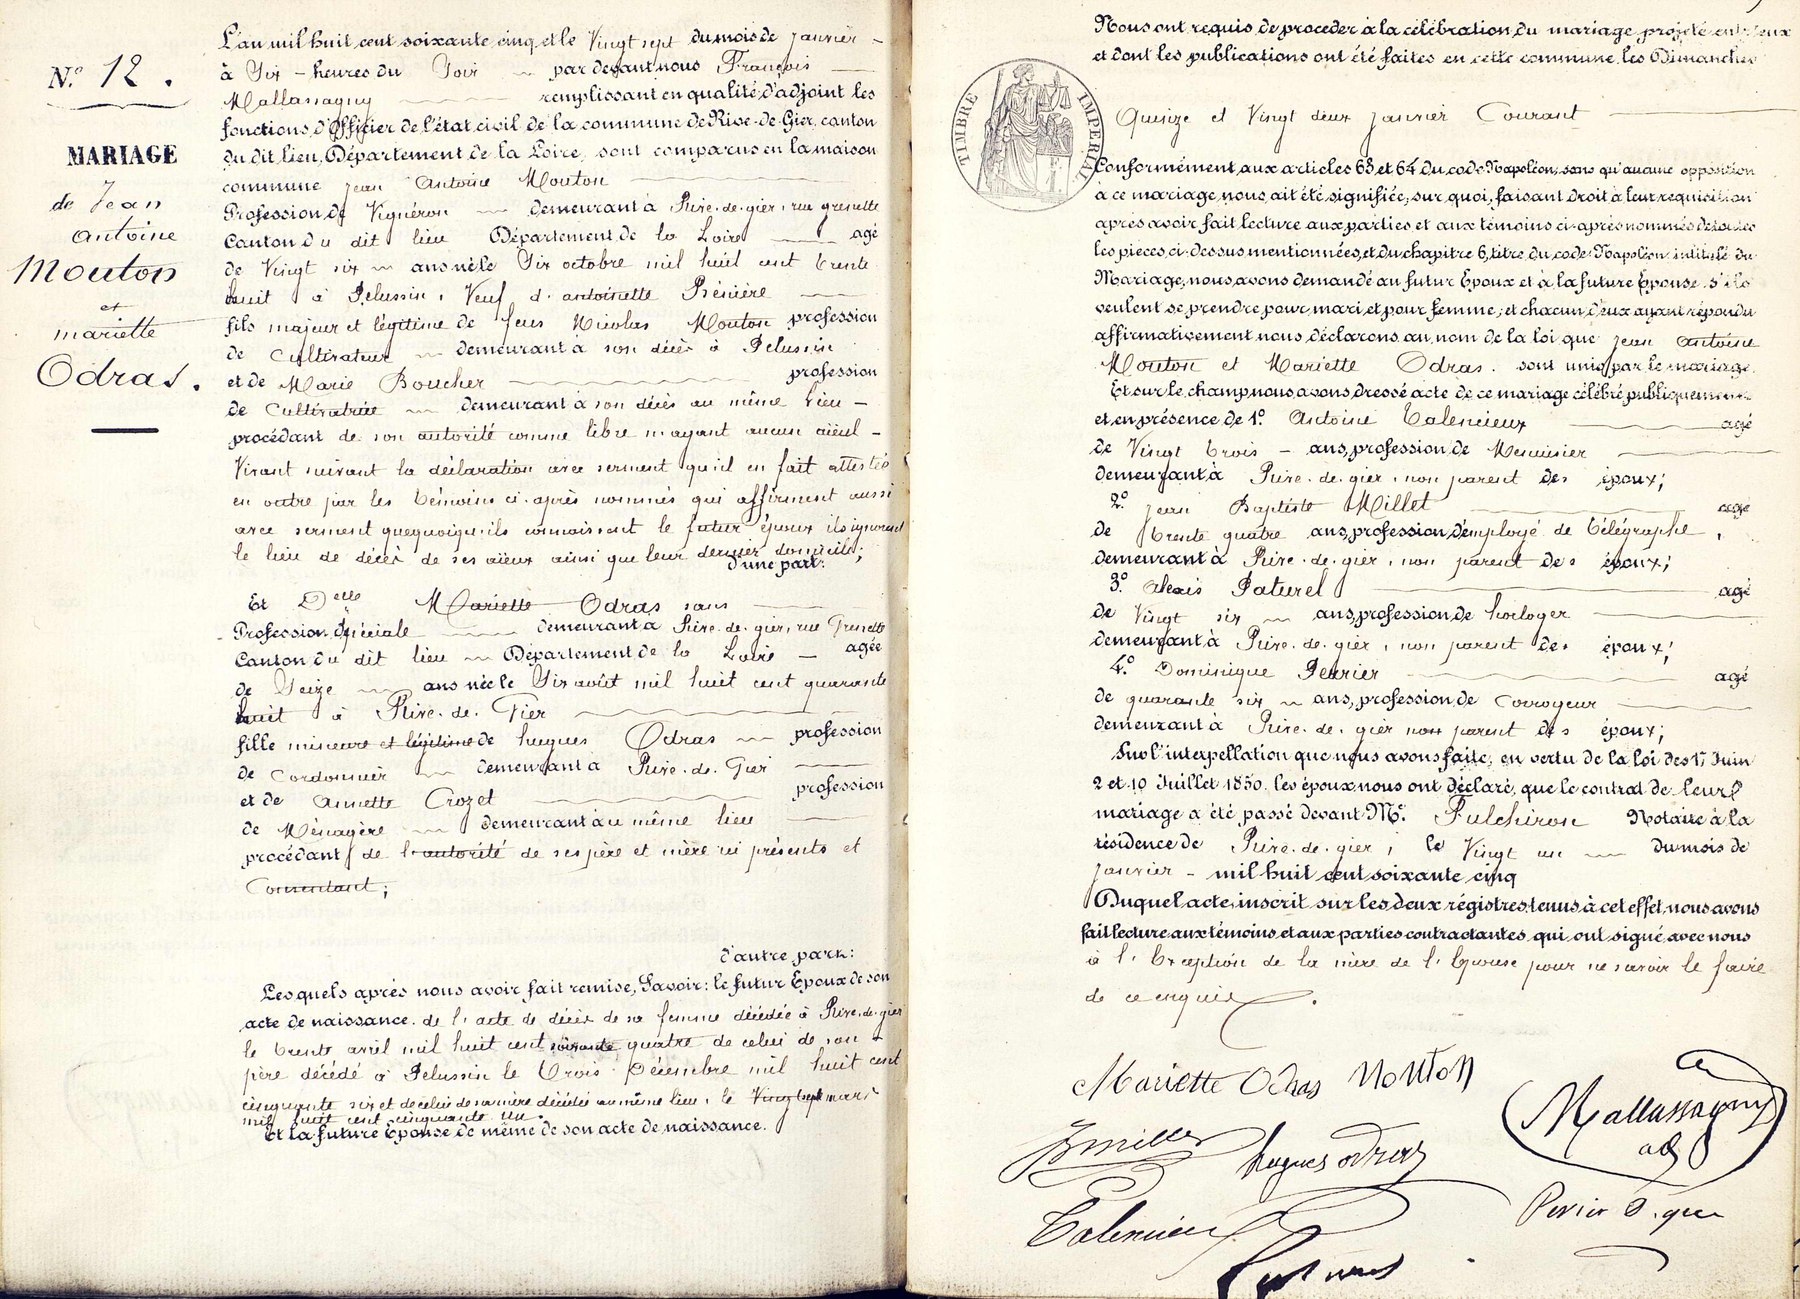 N.º 12.
MARIAGE
de Jean
Antoine
Mouton
et
mariette
Odras.
L'an mil huit cent soixante cinq et le Vingt sept du mois de janvier
à Six heures du Soir par devant nous François
Mallassagny remplissant en qualité d'adjoint les
fonctions d'Officier de l'état civil de la commune de Rive-de-Gier, canton
du dit lieu, Département de la Loire, sont comparus en la maison
commune jean Antoine Mouton
Profession de Vigneron demeurant à Rive-de-gier, rue grenette
Canton du dit lieu Département de la Loire agé
de Vingt six ans né le Six octobre mil huit cent trente
huit à Pelussin, Veuf d'antoinette
fils majeur et légitime de feus Nicolas Mouton profession
de Cultivateur demeurant à son décès à Pelussin
et de Marie Boucher profession
de Cultivatrice demeurant à son décès au même lieu
procédant de son autorité comme libre n'ayant aucun aïeul
Vivant suivant la déclaration avec serment qu'il en fait attestée
en outre par les témoins ci-après nommés qui affirment aussi
avec serment que quoiqu'ils connaissent le futur époux ils ignorent
le lieu de décès de ses aïeux ainsi que leur dernier domicile;
d'une part:
Et Delle Mariette Odras sans
Profession spéciale demeurant à Rive-de-gier, rue Grenette
Canton du dit lieu Département de la Loire agée
de Seize ans née le Six août mil huit cent quarante
huit à Rive-de-Gier
fille mineure et légitime de hugues Odras profession
de Cordonnier demeurant à Rive-de-Gier
et de Annette Crozet profession
de Ménagère demeurant au même lieu
procédant de l'autorité de ses père et mère ici présents et
Consentant;
d'autre part:
Lesquels après nous avoir fait remise, Savoir: le futur Epoux de son
acte de naissance. de l'acte de décès de sa femme décédée à Rive-de-gier
le trente avril mil huit cent soixante quatre de celui de son
père décédé à Pelussin le trois Décembre mil huit cent
cinquante six et de celui de sa mère décédée au même lieu, le Vingt sept mars
mil huit cent cinquante un.
Et la future Epouse de même de son acte de naissance.
Nous ont requis de procéder à la célébration du mariage projeté entr'eux
et dont les publications ont été faites en cette commune, les Dimanches
TIMBRE IMPERIAL
Quinze et Vingt deux janvier Courant
Conformément aux articles 63 et 64 du code Napoléon, sans qu'aucune opposition
à ce mariage nous ait été signifiée; sur quoi, faisant droit à leur requisition
après avoir fait lecture aux parties et aux témoins ci-après nommés de toutes
les pièces ci-dessus mentionnées, et du chapitre 6, titre du code Napoléon intitulé du
Mariage, nous avons demandé au futur Epoux et à la future Epouse s'ils
veulent se prendre pour mari et pour femme; et chacun d'eux ayant répondu
affirmativement nous déclarons au nom de la loi que jean antoine
Mouton et Mariette Odras. sont unis par le mariage.
Et sur le champ nous avons dressé acte de ce mariage célébré publiquement
et en présence de 1.º Antoine Talencieux agé
de Vingt trois ans, profession de Menuisier
demeurant à Rive-de-gier, non parent des époux;
2.º jean Baptiste Millet agé
de trente quatre ans, profession d'employé de télégraphe,
demeurant à Rive-de-gier, non parent des époux;
3.º Alexis Paturel agé
de Vingt six ans, profession de horloger
demeurant à Rive-de-gier, non parent des époux;
4.º Dominique Perrier agé
de quarante six ans, profession de Corroyeur
demeurant à Rive-de-gier non parent des époux;
Sur l'interpellation que nous avons faite, en vertu de la loi des 17 Juin
2 et 10 Juillet 1850. les époux nous ont déclaré, que le contrat de leur
mariage a été passé devant Me. Fulchiron Notaire à la
résidence de Rive-de-gier, le Vingt un du mois de
janvier mil huit cent soixante cinq
Duquel acte, inscrit sur les deux régistres tenus à cet effet, nous avons
fait lecture aux témoins, et aux parties contractantes, qui ont signé avec nous
à l'Exception de la mère de l'Epouse pour ne savoir le faire
de ce enquis.
Mariette Odras Mouton
JBmillet hugues odras Mallassagny
adj
Talencieux Perrier